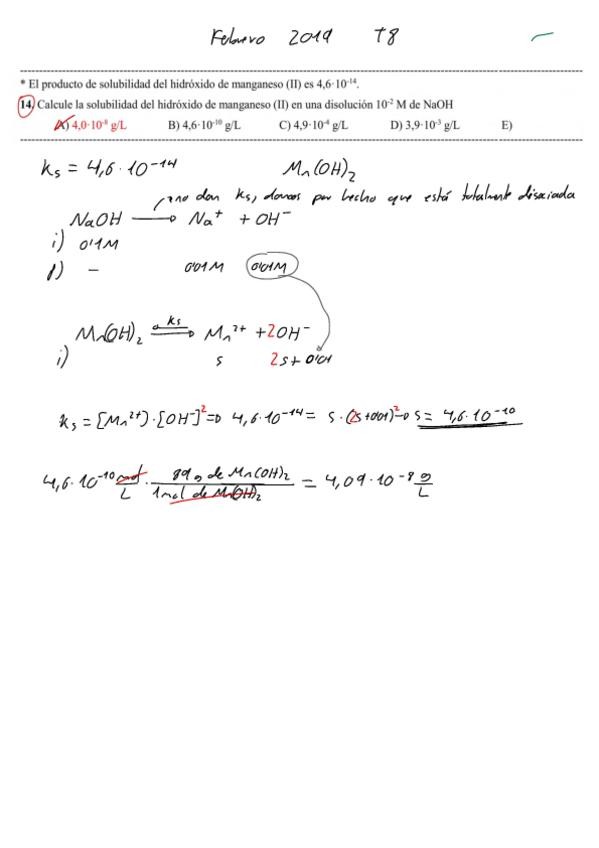 Febrero 2019 T8
* El producto de solubilidad del hidróxido de manganeso (II) es 4,6·10⁻¹⁴.
14. Calcule la solubilidad del hidróxido de manganeso (II) en una disolución 10⁻² M de NaOH
A) 4,0·10⁻⁸ g/L B) 4,6·10⁻¹⁰ g/L C) 4,9·10⁻⁴ g/L D) 3,9·10⁻³ g/L E)
Ks = 4,6·10⁻¹⁴ Mn(OH)₂
no dan Ks, damos por hecho que está totalmente disociada
NaOH ⟶ Na⁺ + OH⁻
i) 0'1M
f) – 0'01M 0'01M
Mn(OH)₂ ⇌ Ks Mn²⁺ + 2OH⁻
i) s 2s + 0'01
Ks = [Mn²⁺]·[OH⁻]² ⇒ 4,6·10⁻¹⁴ = s·(2s+0'01)² → s = 4,6·10⁻¹⁰
4,6·10⁻¹⁰ mol/L · 89 g de Mn(OH)₂ / 1 mol de Mn(OH)₂ = 4,09·10⁻⁸ g/L